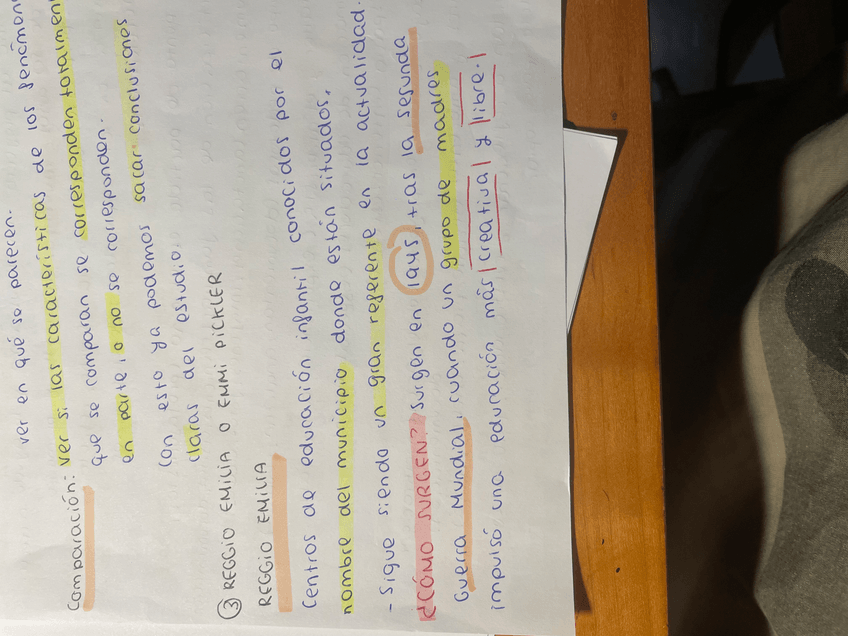 ver en qué se parecen.
Comparación: ver si las características de los fenómen
que se comparan se corresponden totalmen
en parte o no se corresponden.
Con esto ya podemos sacar conclusiones
claras del estudio.
③ REGGIO EMILIA O EMMI PICKLER
REGGIO EMILIA
Centros de educación infantil conocidos por el
nombre del municipio donde están situados.
- Sigue siendo un gran referente en la actualidad.
¿CÓMO SURGEN? Surgen en 1945, tras la segunda
Guerra Mundial, cuando un grupo de madres
impulsó una educación más creativa y libre.